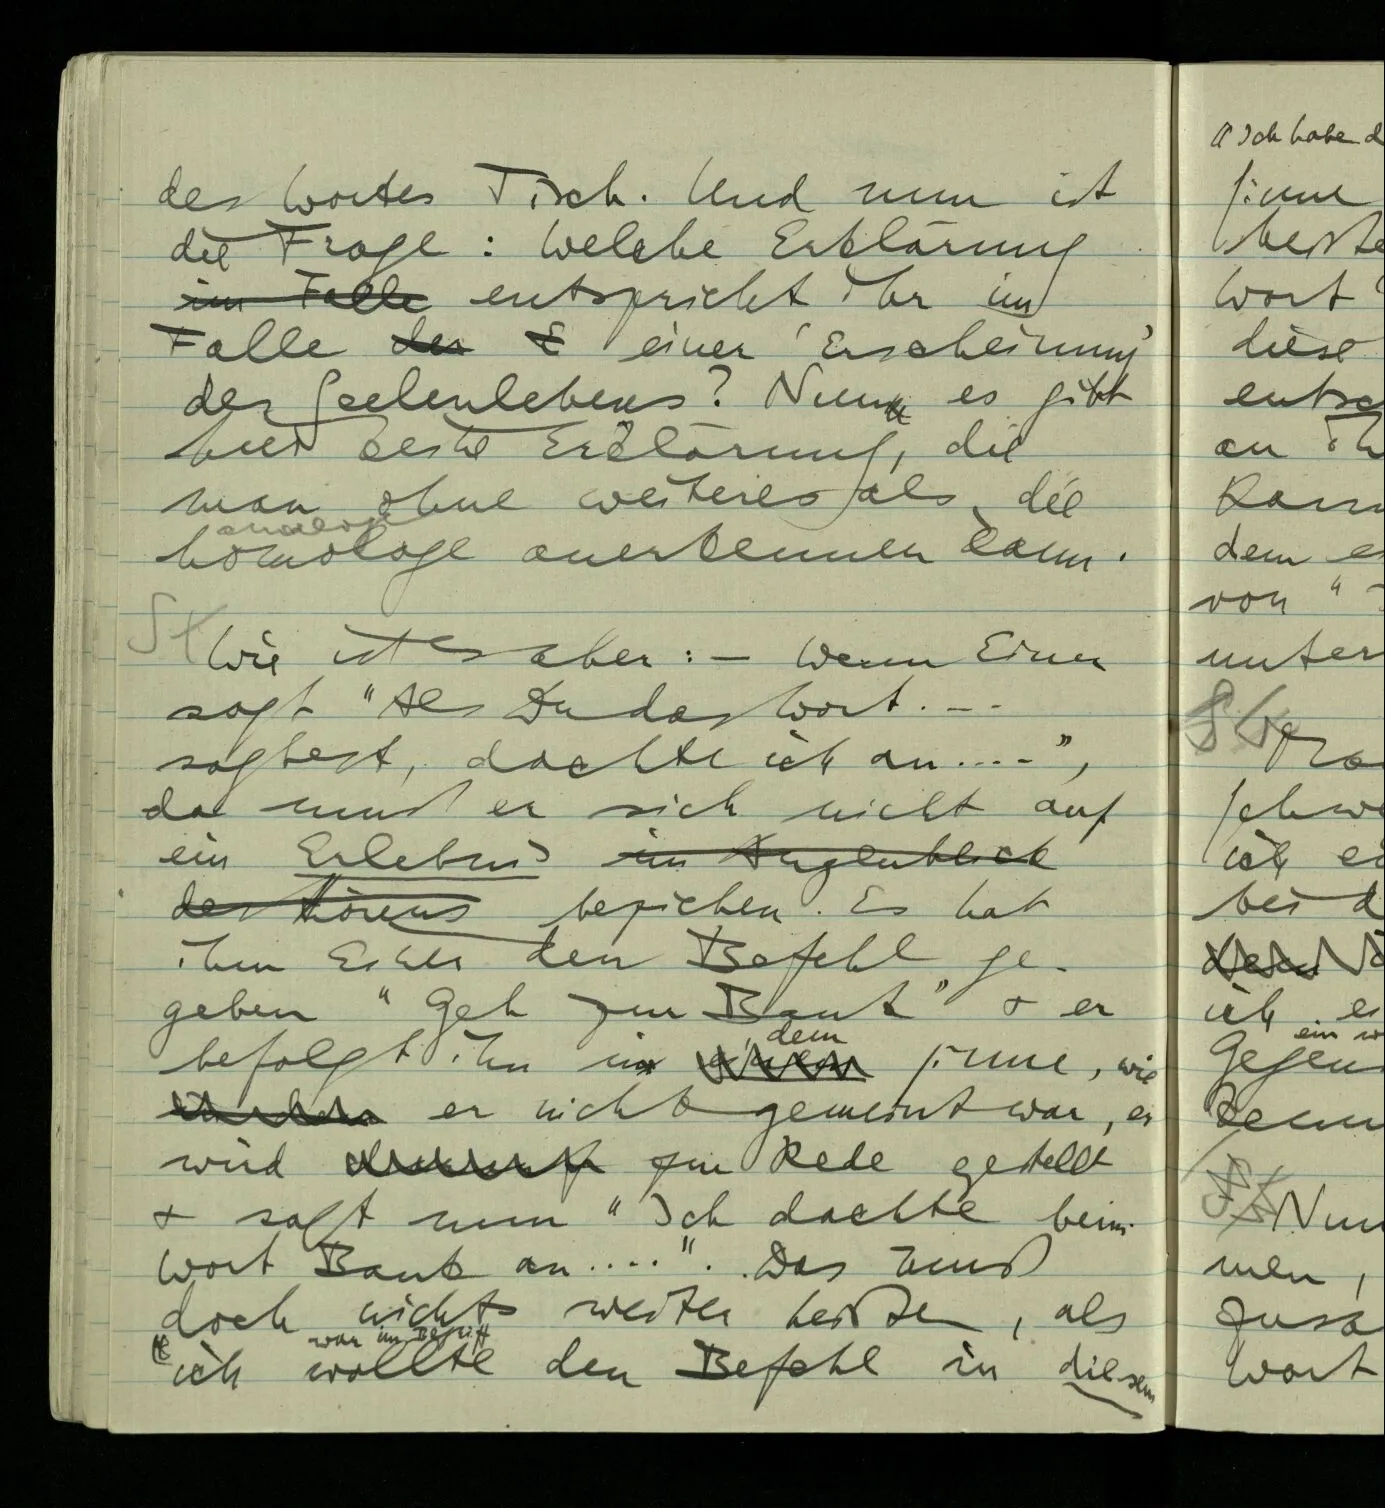 des Wortes Tisch. Und nun ist
die Frage: Welche Erklärung
im Falle entspricht ihr im
Falle der E einer 'Erscheinung'
des Seelenlebens? Nun es gibt
hier keine Erklärung, die
man ohne weiteres als die
analoge
homologe anerkennen kann.
Wie ist es aber: – Wenn Einer
sagt "Als Du das Wort ...
sagtest, dachte ich an ....",
da muß er sich nicht auf
ein Erlebnis im Augenblick
des Hörens beziehen. Es hat
ihm Einer den Befehl ge-
geben "Geh zur Bank" & er
dem
befolgt ihn in einem Sinne, wie
er nicht gemeint war, er
wird zur Rede gestellt
& sagt nun "Ich dachte beim
Wort Bank an ....". Das muß
doch nichts weiter heißen, als
war im Begriff
"ich wollte den Befehl in diesem
"Ich habe d
Sinne
heiße
Wort
diese
entsp
an ih
kann
dem e
von "
unter
Fra
schwe
ich ei
bei d
ich es
ein w
Gegen
kenn
Nun
men,
zusa
Wort